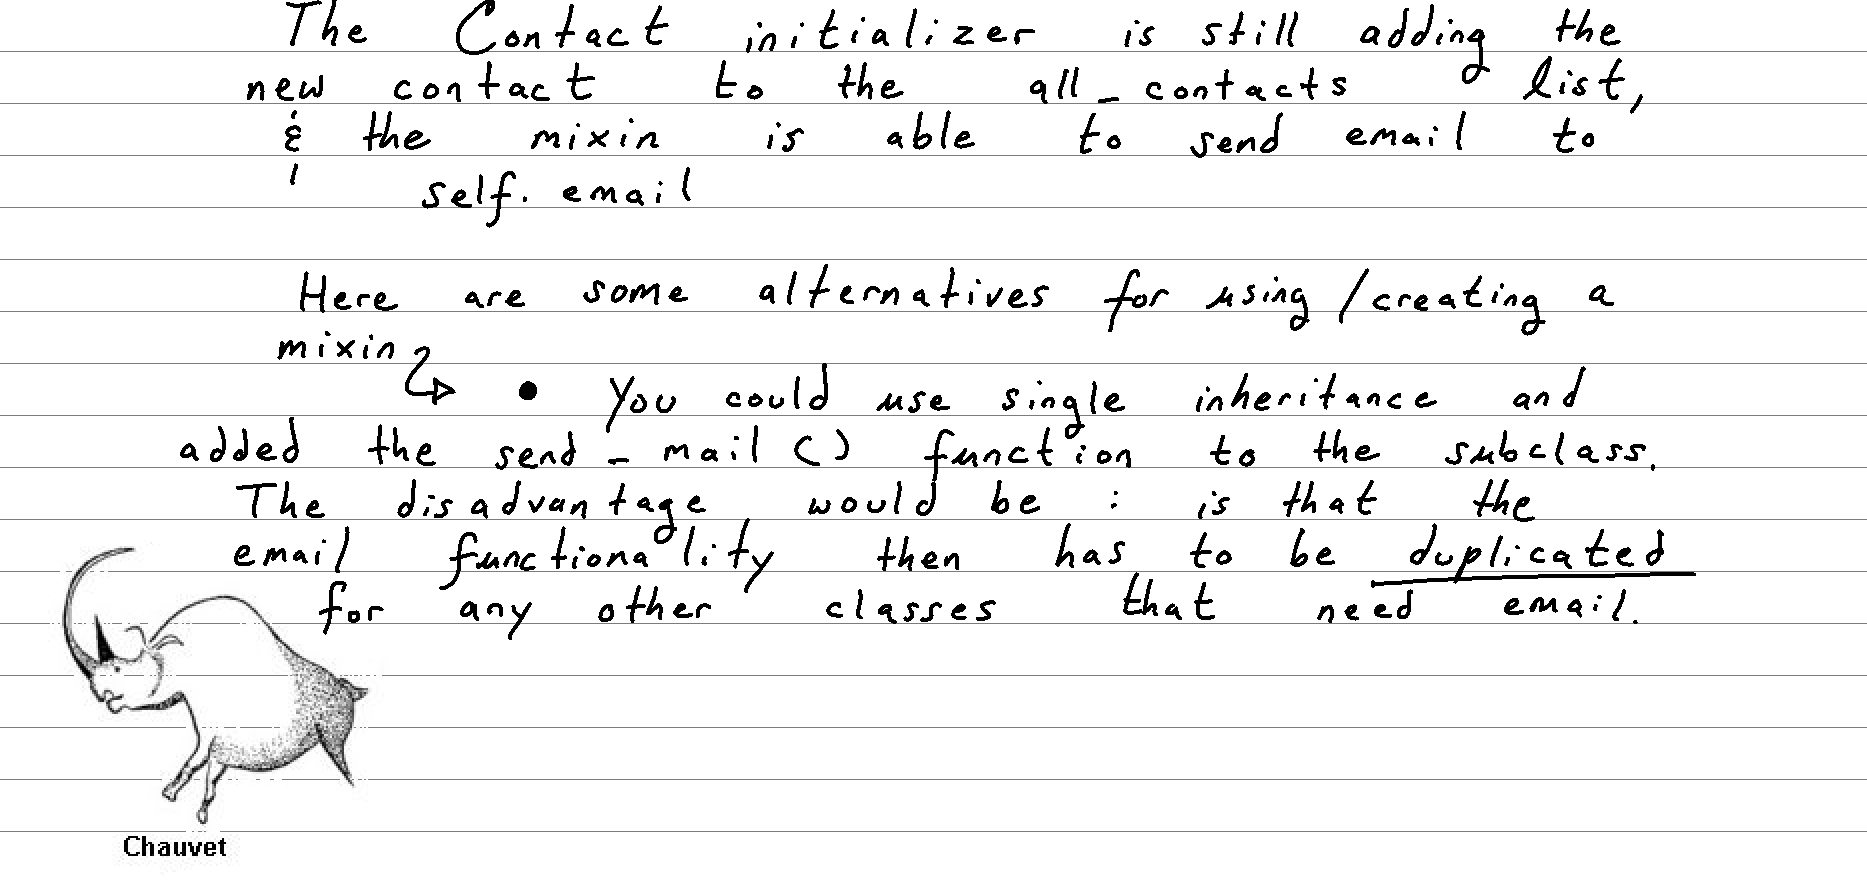 The Contact initializer is still adding the
new contact to the all_contacts list,
& the mixin is able to send email to
self.email
Here are some alternatives for using/creating a
mixin
• You could use single inheritance and
added the send_mail() function to the subclass.
The disadvantage would be : is that the
email functionality then has to be duplicated
for any other classes that need email.
Chauvet